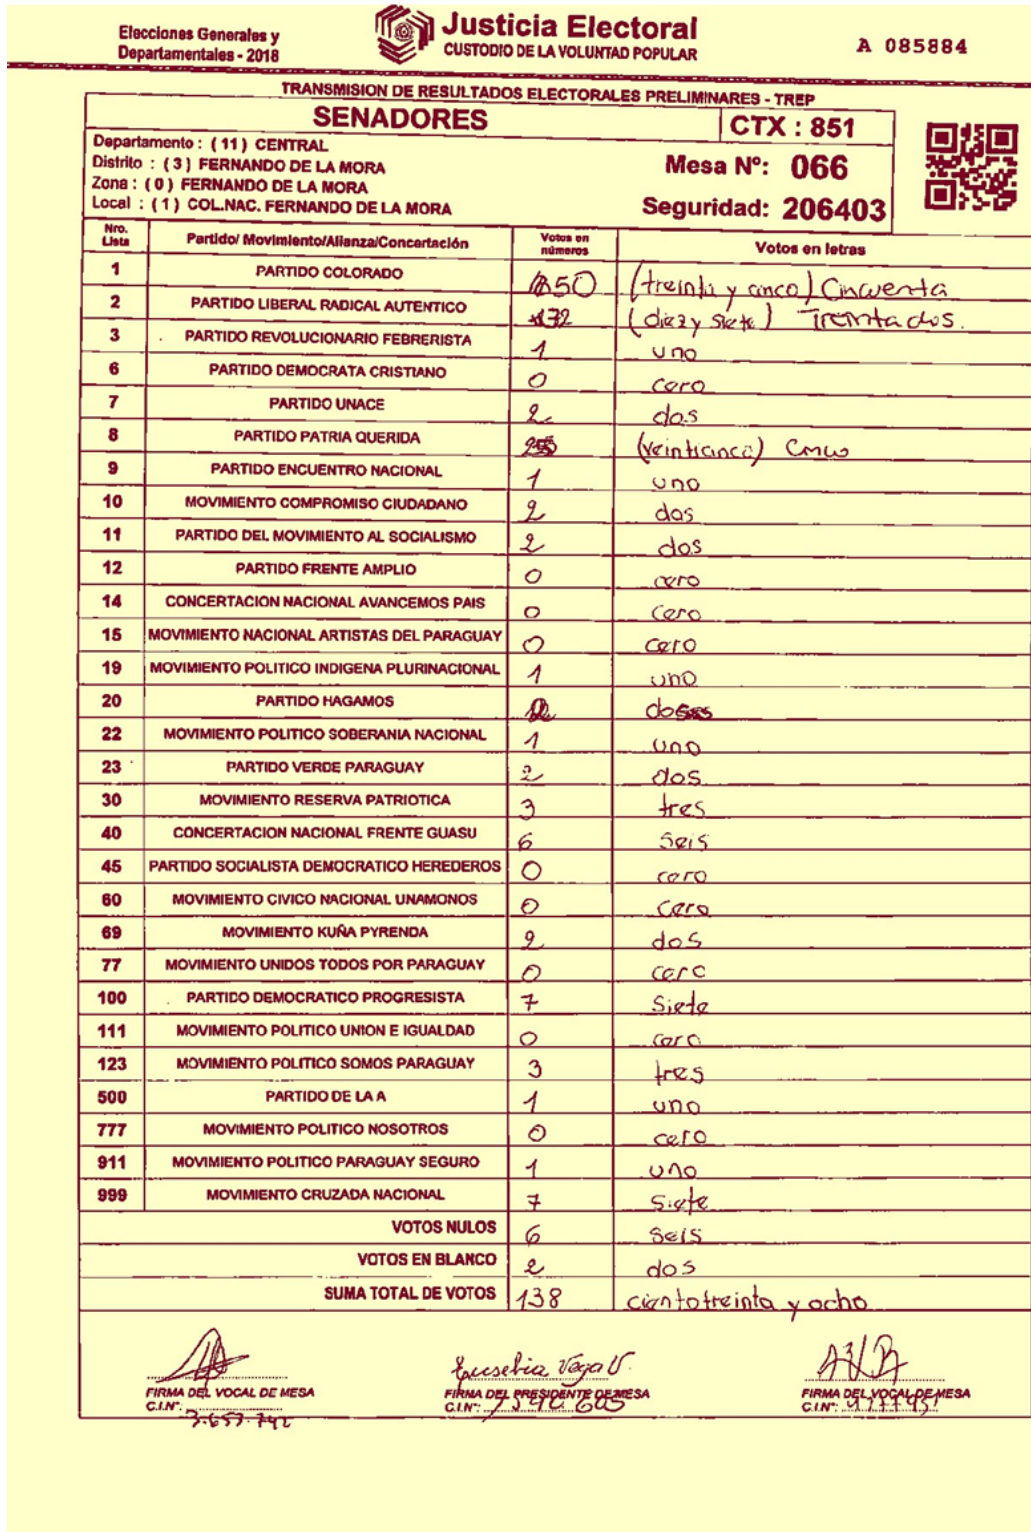 Elecciones Generales y
Departamentales - 2018
Justicia Electoral
CUSTODIO DE LA VOLUNTAD POPULAR
A 085884
TRANSMISION DE RESULTADOS ELECTORALES PRELIMINARES - TREP
SENADORES CTX : 851
Departamento : ( 11 ) CENTRAL
Distrito : ( 3 ) FERNANDO DE LA MORA
Zona : ( 0 ) FERNANDO DE LA MORA
Local : ( 1 ) COL.NAC. FERNANDO DE LA MORA
Mesa Nº: 066
Seguridad: 206403
Nro. Lista Partido/ Movimiento/Alianza/Concertación Votos en números Votos en letras
1 PARTIDO COLORADO 50 (treinta y cinco) Cincuenta
2 PARTIDO LIBERAL RADICAL AUTENTICO (diez y siete) Treinta dos.
3 PARTIDO REVOLUCIONARIO FEBRERISTA 1 uno
6 PARTIDO DEMOCRATA CRISTIANO 0 cero
7 PARTIDO UNACE 2 dos
8 PARTIDO PATRIA QUERIDA (veinticinco) Cinco
9 PARTIDO ENCUENTRO NACIONAL 1 uno
10 MOVIMIENTO COMPROMISO CIUDADANO 2 dos
11 PARTIDO DEL MOVIMIENTO AL SOCIALISMO 2 dos
12 PARTIDO FRENTE AMPLIO 0 cero
14 CONCERTACION NACIONAL AVANCEMOS PAIS 0 cero
15 MOVIMIENTO NACIONAL ARTISTAS DEL PARAGUAY 0 cero
19 MOVIMIENTO POLITICO INDIGENA PLURINACIONAL 1 uno
20 PARTIDO HAGAMOS 2 dos
22 MOVIMIENTO POLITICO SOBERANIA NACIONAL 1 uno
23 PARTIDO VERDE PARAGUAY 2 dos
30 MOVIMIENTO RESERVA PATRIOTICA 3 tres
40 CONCERTACION NACIONAL FRENTE GUASU 6 seis
45 PARTIDO SOCIALISTA DEMOCRATICO HEREDEROS 0 cero
60 MOVIMIENTO CIVICO NACIONAL UNAMONOS 0 cero
69 MOVIMIENTO KUÑA PYRENDA 2 dos
77 MOVIMIENTO UNIDOS TODOS POR PARAGUAY 0 cero
100 PARTIDO DEMOCRATICO PROGRESISTA 7 Siete
111 MOVIMIENTO POLITICO UNION E IGUALDAD 0 cero
123 MOVIMIENTO POLITICO SOMOS PARAGUAY 3 tres
500 PARTIDO DE LA A 1 uno
777 MOVIMIENTO POLITICO NOSOTROS 0 cero
911 MOVIMIENTO POLITICO PARAGUAY SEGURO 1 uno
999 MOVIMIENTO CRUZADA NACIONAL 7 Siete
VOTOS NULOS 6 seis
VOTOS EN BLANCO 2 dos
SUMA TOTAL DE VOTOS 138 ciento treinta y ocho
Eusebia Vega V.
FIRMA DEL VOCAL DE MESA FIRMA DEL PRESIDENTE DE MESA FIRMA DEL VOCAL DE MESA
C.I.Nº: 3.657.742 C.I.Nº: C.I.Nº: